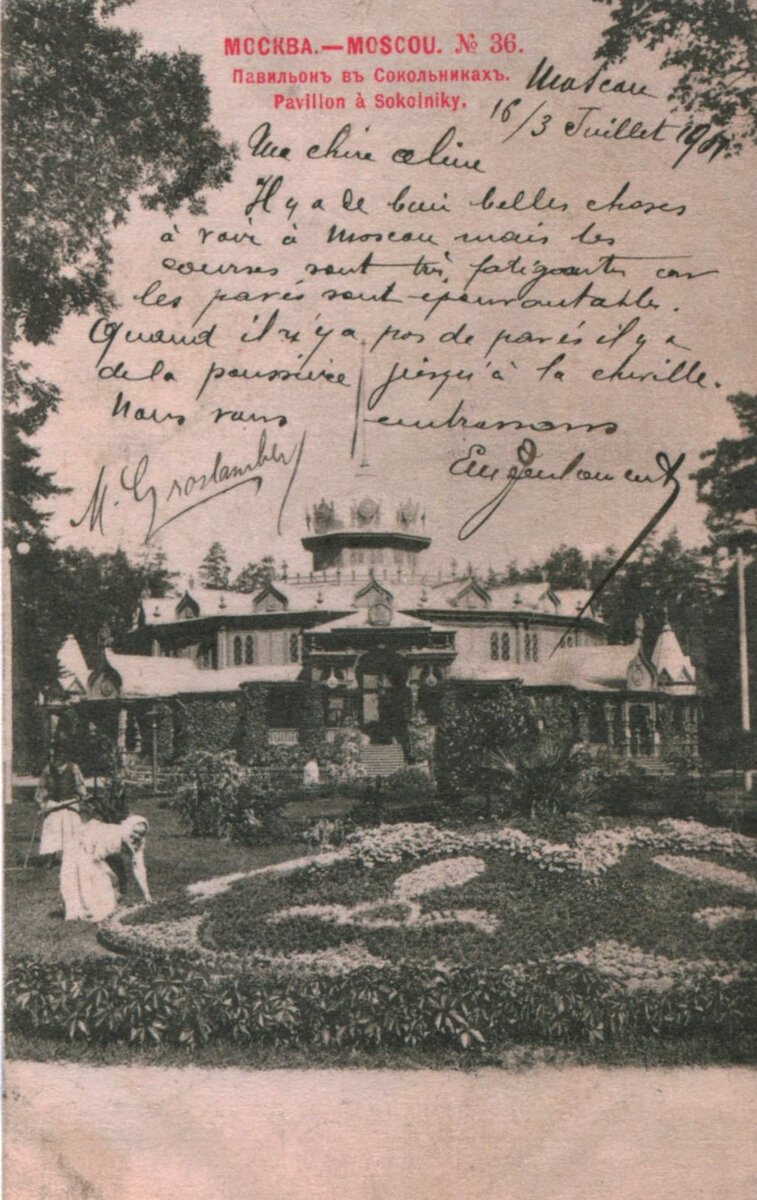 МОСКВА.—MOSCOU. № 36.
Павильонъ въ Сокольникахъ.
Pavillon à Sokolniky.
Moscou
16/3 Juillet 1901
Ma chère Céline
Il y a de bien belles choses
à voir à Moscou mais les
courses sont très fatigantes car
les pavés sont épouvantables.
Quand il n'y a pas de pavés il y a
de la poussière jusqu'à la cheville.
Nous vous embrassons
M.